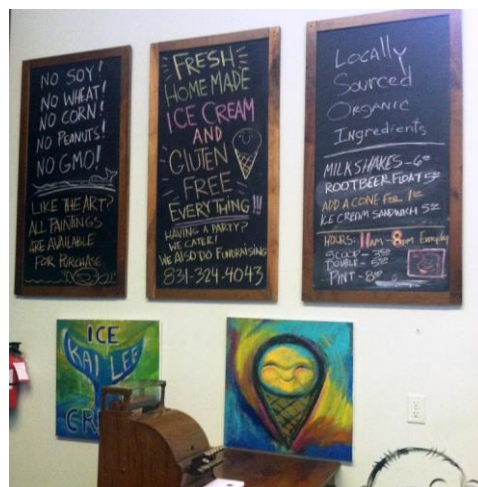 NO SOY!
NO WHEAT!
NO CORN!
NO PEANUTS!
NO GMO!
LIKE THE ART?
ALL PAINTINGS
ARE AVAILABLE
FOR PURCHASE
FRESH
HOMEMADE
ICE CREAM
AND
GLUTEN
FREE
EVERYTHING!!!
HAVING A PARTY?
WE CATER!
WE ALSO DO FUNDRAISING
831-324-4043
Locally
Sourced
Organic
Ingredients
MILKSHAKES - 6
ROOTBEER FLOAT 5
ADD A CONE FOR 1
ICE CREAM SANDWICH 5
HOURS: 11am - 8pm Everyday
SCOOP - 3
DOUBLE - 5
PINT - 8
ICE
KAI LEE
CR